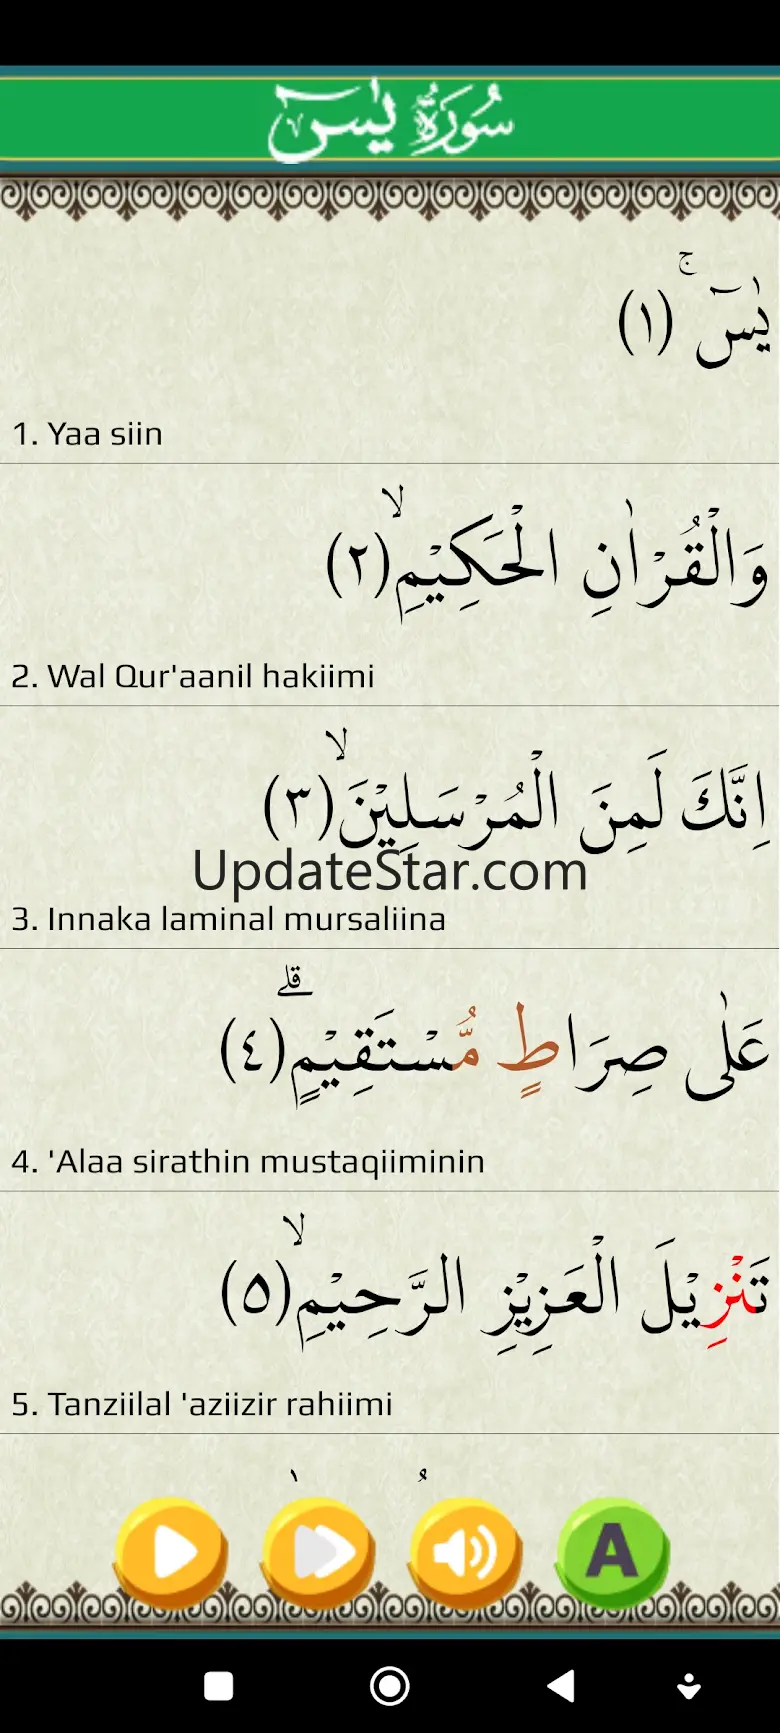 سُورَةُ يٰسٓ
يٰسٓ ۚ (١)
1. Yaa siin
وَالْقُرْاٰنِ الْحَكِيْمِۙ (٢)
2. Wal Qur'aanil hakiimi
اِنَّكَ لَمِنَ الْمُرْسَلِيْنَۙ (٣)
UpdateStar.com
3. Innaka laminal mursaliina
عَلٰى صِرَاطٍ مُّسْتَقِيْمٍۗ (٤)
4. 'Alaa sirathin mustaqiiminin
تَنْزِيْلَ الْعَزِيْزِ الرَّحِيْمِۙ (٥)
5. Tanziilal 'aziizir rahiimi
A